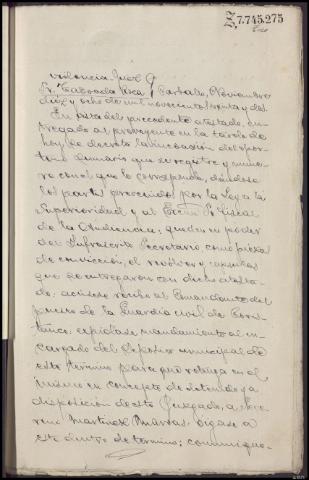 Z 7.745.275
Providencia Juez
Sr. Taboada Roca. Carballo, Noviembre
diez y ocho de mil novecientos treinta y dos.
En vista del precedente atestado, en-
tregado al proveyente en la tarde de
hoy, se decreta la incoación del opor-
tuno sumario que se registre y nume-
re con el que le corresponda, dándose
los partes prevenidos por la Ley a la
Superioridad y al Excmo Sr. Fiscal
de la Audiencia; queden en poder
del Infrascrito Secretario como piezas
de convicción, el revólver y cápsulas
que se entregaron con dicho atesta-
do; acúsese recibo al Comandante del
puesto de la Guardia civil de Coris-
tanco; expídase mandamiento al en-
cargado del Depósito municipal de
este término para que retenga en el
mismo en concepto de detenido y a
disposición de este Juzgado, a
Martínez óigase a
este dentro de término; comuníque-